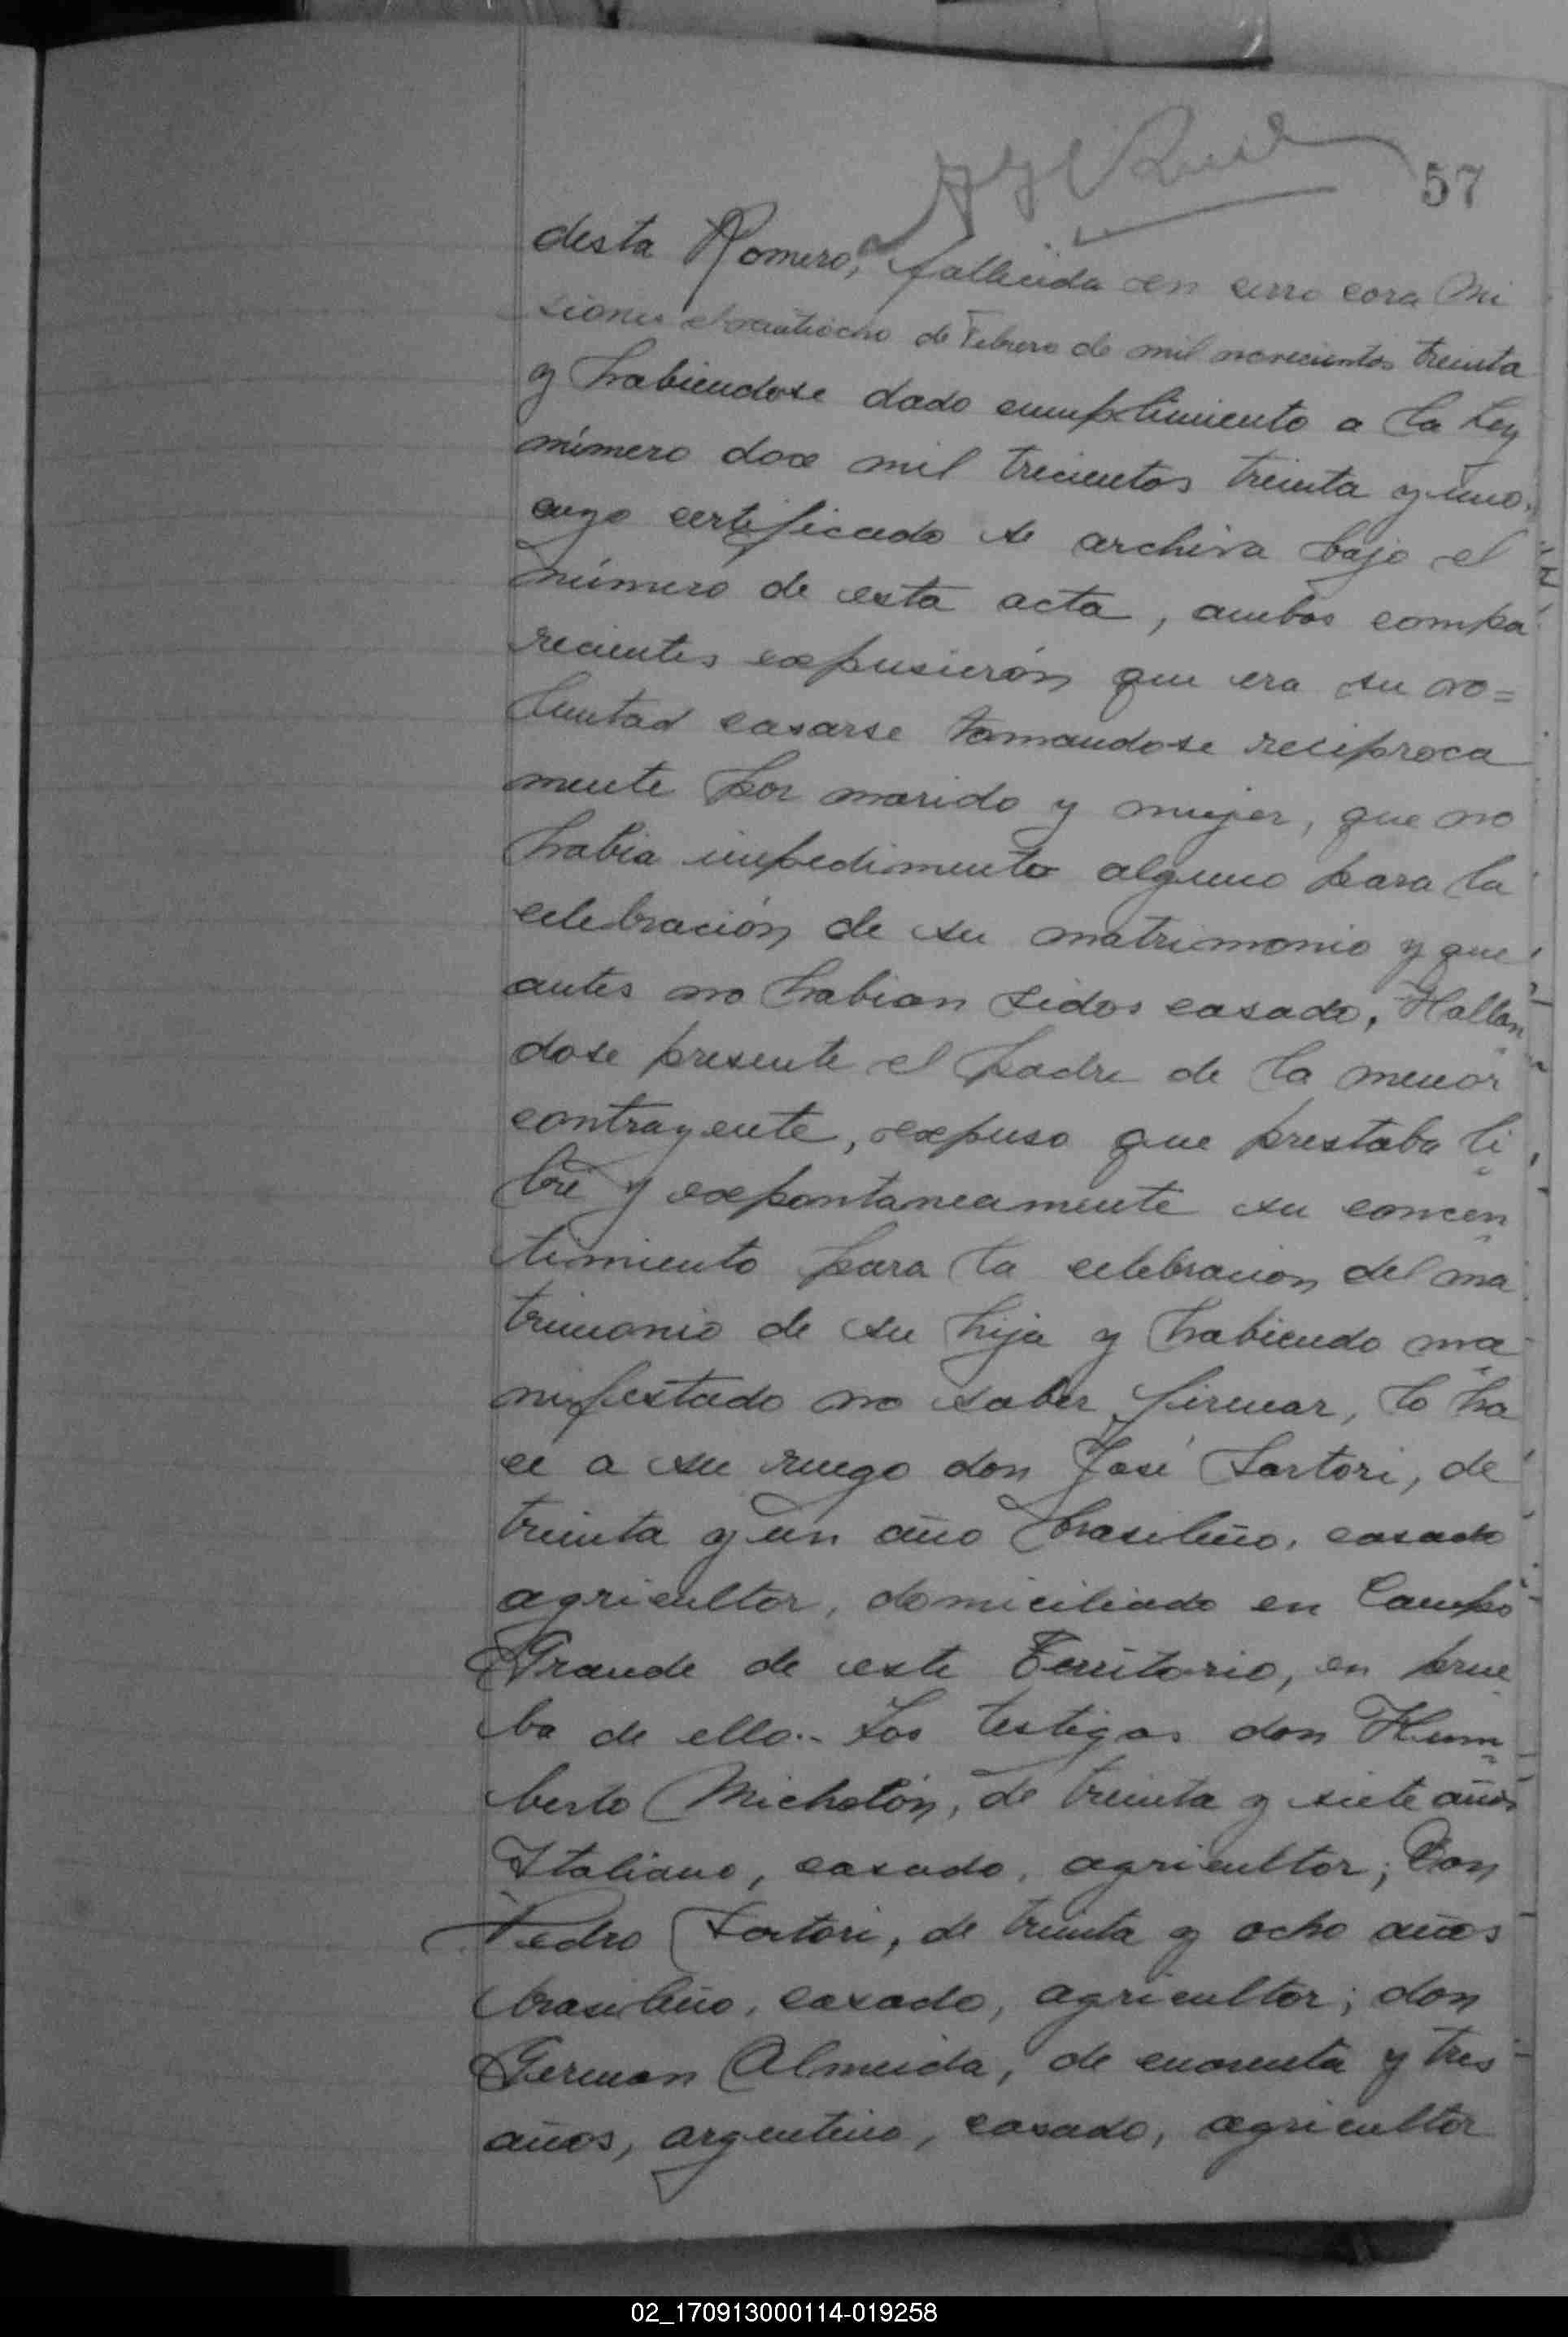 57
desta Romero, fallecida en cerro cora Mi
siones el veintiocho de Febrero de mil novecientos treinta
y habiendose dado cumplimiento a la Ley
número doce mil trecientos treinta y uno,
cuyo certificado se archiva bajo el
número de esta acta, ambos compa
recientes expusierón que era su vo=
luntad casarse tomandose reciproca
mente por marido y mujer, que no
habia impedimento alguno para la
celebración de su matrimonio y que
antes no habian sidos casado, Hallan
dose presente el padre de la menor
contrayente, expuso que prestaba li
bre y expontaneamente su concen
timiento para la celebracion del ma
trimonio de su hija y habiendo ma
nifestado no saber firmar, lo ha
ce a su ruego don José Sartori, de
treinta y un año brasileño, casado
agricultor, domiciliado en Campo
Grande de este Territorio, en prue
ba de ello.- Los testigos don Hum
berto Michelón, de treinta y siete años
Italiano, casado, agricultor; Don
Pedro Sartori, de treinta y ocho años
brasileño, casado, agricultor; don
German Almeida, de cuarenta y tres
años, argentino, casado, agricultor
02_170913000114-019258